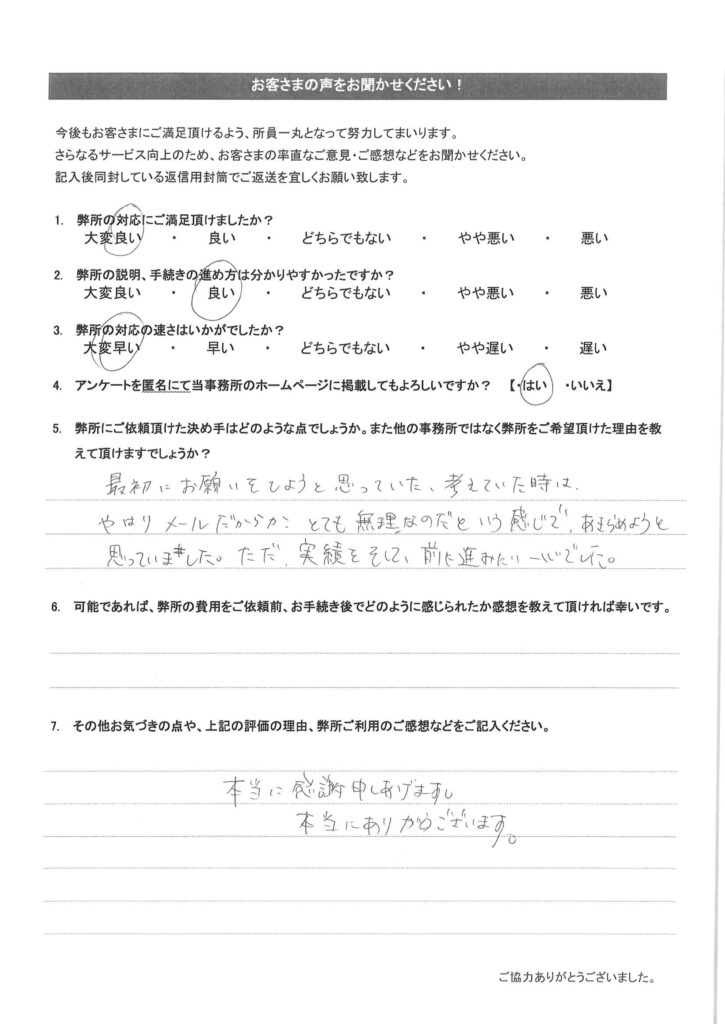 お客さまの声をお聞かせください！
今後もお客さまにご満足頂けるよう、所員一丸となって努力してまいります。
さらなるサービス向上のため、お客さまの率直なご意見・ご感想などをお聞かせください。
記入後同封している返信用封筒でご返送を宜しくお願い致します。
1. 弊所の対応にご満足頂けましたか？
大変良い ・ 良い ・ どちらでもない ・ やや悪い ・ 悪い
2. 弊所の説明、手続きの進め方は分かりやすかったですか？
大変良い ・ 良い ・ どちらでもない ・ やや悪い ・ 悪い
3. 弊所の対応の速さはいかがでしたか？
大変早い ・ 早い ・ どちらでもない ・ やや遅い ・ 遅い
4. アンケートを匿名にて当事務所のホームページに掲載してもよろしいですか？ 【・はい ・いいえ】
5. 弊所にご依頼頂けた決め手はどのような点でしょうか。また他の事務所ではなく弊所をご希望頂けた理由を教
えて頂けますでしょうか？
最初にお願いをしようと思っていた、考えていた時は、
やはりメールだからか、とても無理なのだという感じで、あきらめようと
思っていました。ただ、実績をそして、前に進みたい一心でした。
6. 可能であれば、弊所の費用をご依頼前、お手続き後でどのように感じられたか感想を教えて頂ければ幸いです。
7. その他お気づきの点や、上記の評価の理由、弊所ご利用のご感想などをご記入ください。
本当に感謝申しあげます。
本当にありがとうございます。
ご協力ありがとうございました。